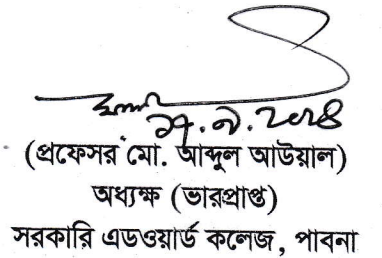 (প্রফেসর মো. আব্দুল আউয়াল)
অধ্যক্ষ (ভারপ্রাপ্ত)
সরকারি এডওয়ার্ড কলেজ, পাবনা